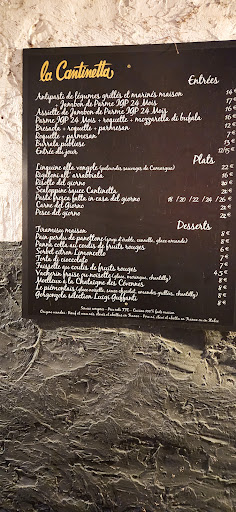 la Cantinetta
Entrées
Antipasto de légumes grillés et marinés maison 14 €
+ Jambon de Parme IGP 24 Mois 17 €
Assiette de Jambon de Parme IGP 24 Mois 16 €
Parme IGP 24 Mois + roquette + mozzarella di bufala 16 €
Bresaola + roquette + parmesan
Roquette + parmesan 7 €
Burrata pugliese 13 €
Entrée du jour 12/15 €
Plats
Linguine alla vongole (palourdes sauvages de Camargue) 22 €
Rigatoni all' arrabbiata 16 €
Risotto del giorno
Scaloppine sauce Cantinetta
Pasta fresca fatta in casa del giorno 18 / 20 / 22 / 24 / 26 €
Carne del giorno
Pesce del giorno
Desserts
Tiramisu maison 8 €
Pain perdu de panettone 8 €
Panna cotta au coulis de fruits rouges 6 €
Sorbet citron Limoncello
Torta di cioccolato 7 €
Faisselle au coulis de fruits rouges
Vacherin fraise ou noisette (glace, meringue, chantilly) 8 €
Moelleux à la Châtaigne des Cévennes 8 €
Le piémontais 8 €
Gorgonzola sélection Luigi Guffanti 8 €